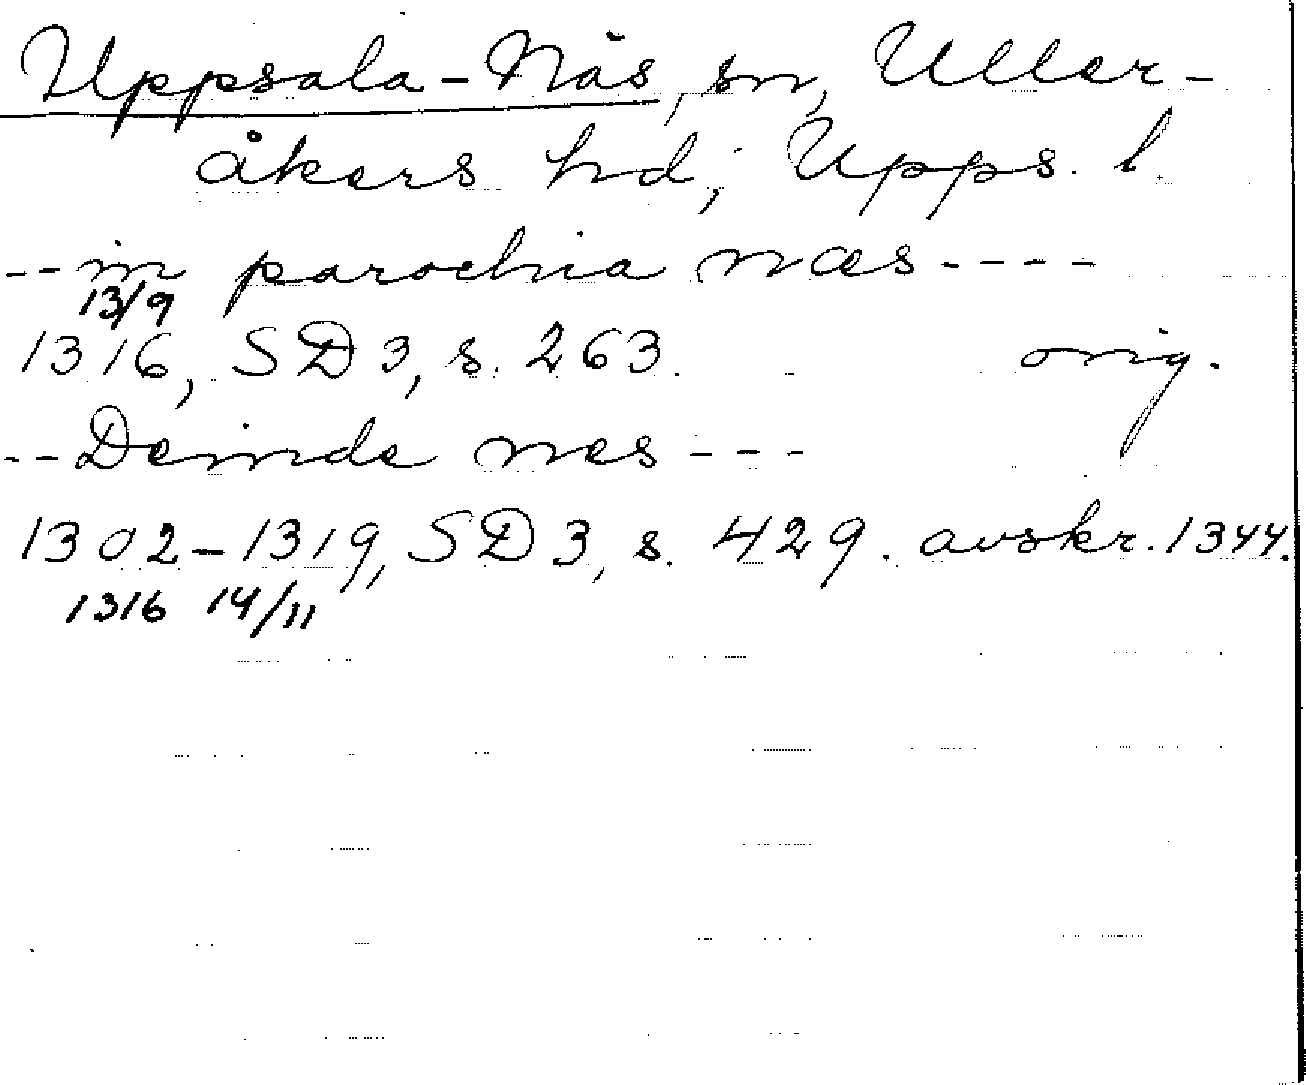 Uppsala-Näs, sn, Uller-
åkers hd; Upps. l.
-- in parochia næs ----
13/9
1316, SD 3, s. 263. orig.
-- Deinde nes ---
1302-1319, SD 3, s. 429. avskr. 1344.
1316 14/11